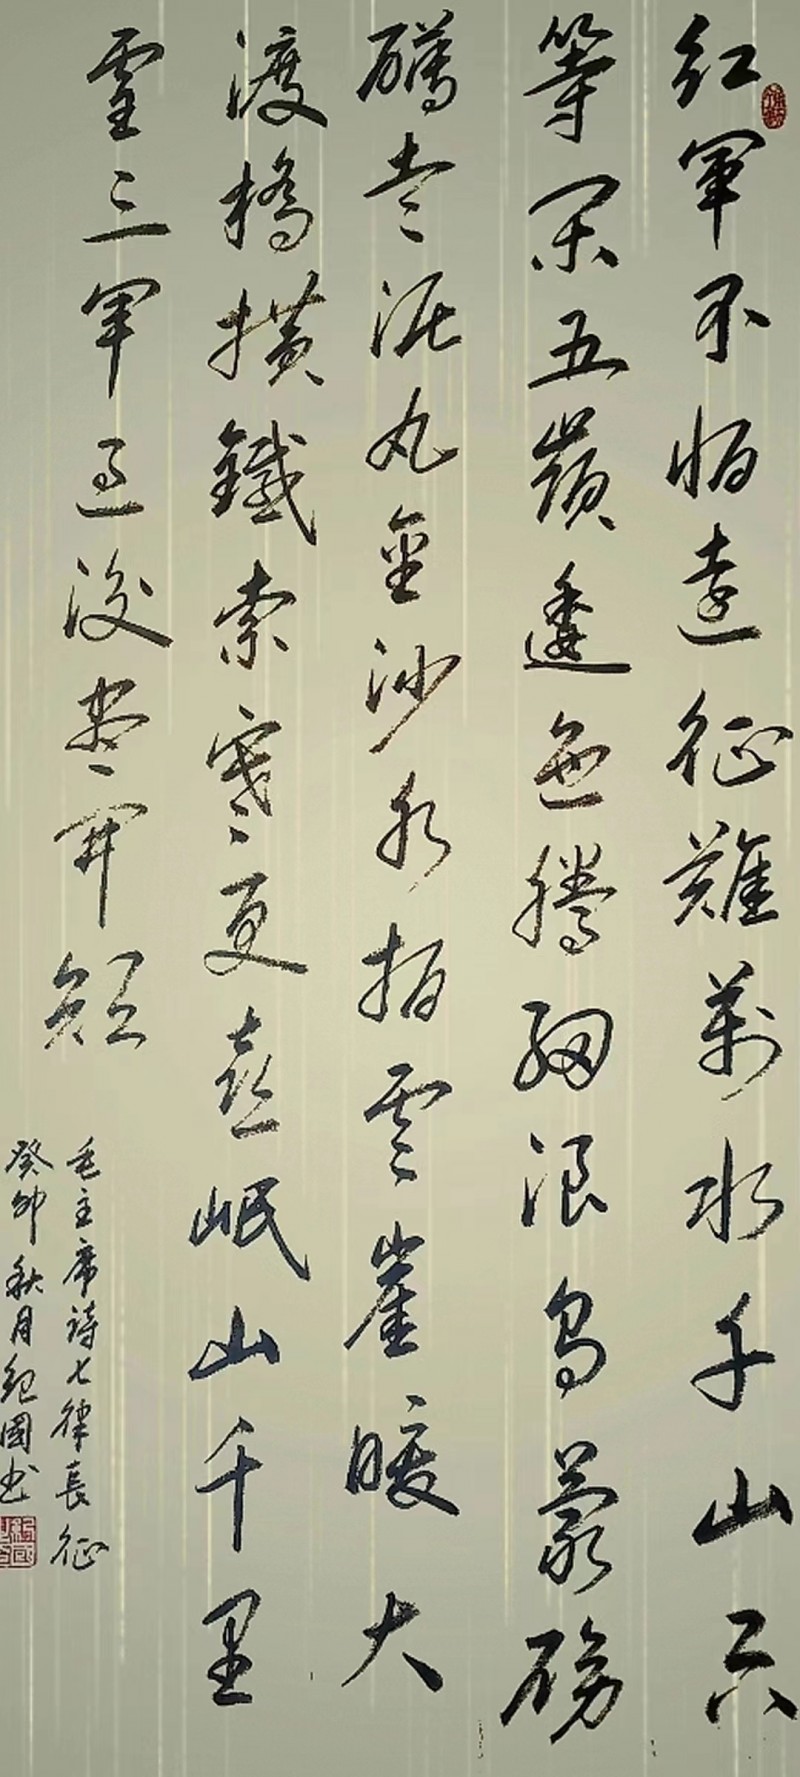 紅軍不怕遠征難萬水千山只
等閑五嶺逶迤騰細浪烏蒙磅
礴走泥丸金沙水拍雲崖暖大
渡橋横鐵索寒更喜岷山千里
雪三軍過後盡開顔
毛主席詩七律長征
癸卯秋月紀國书